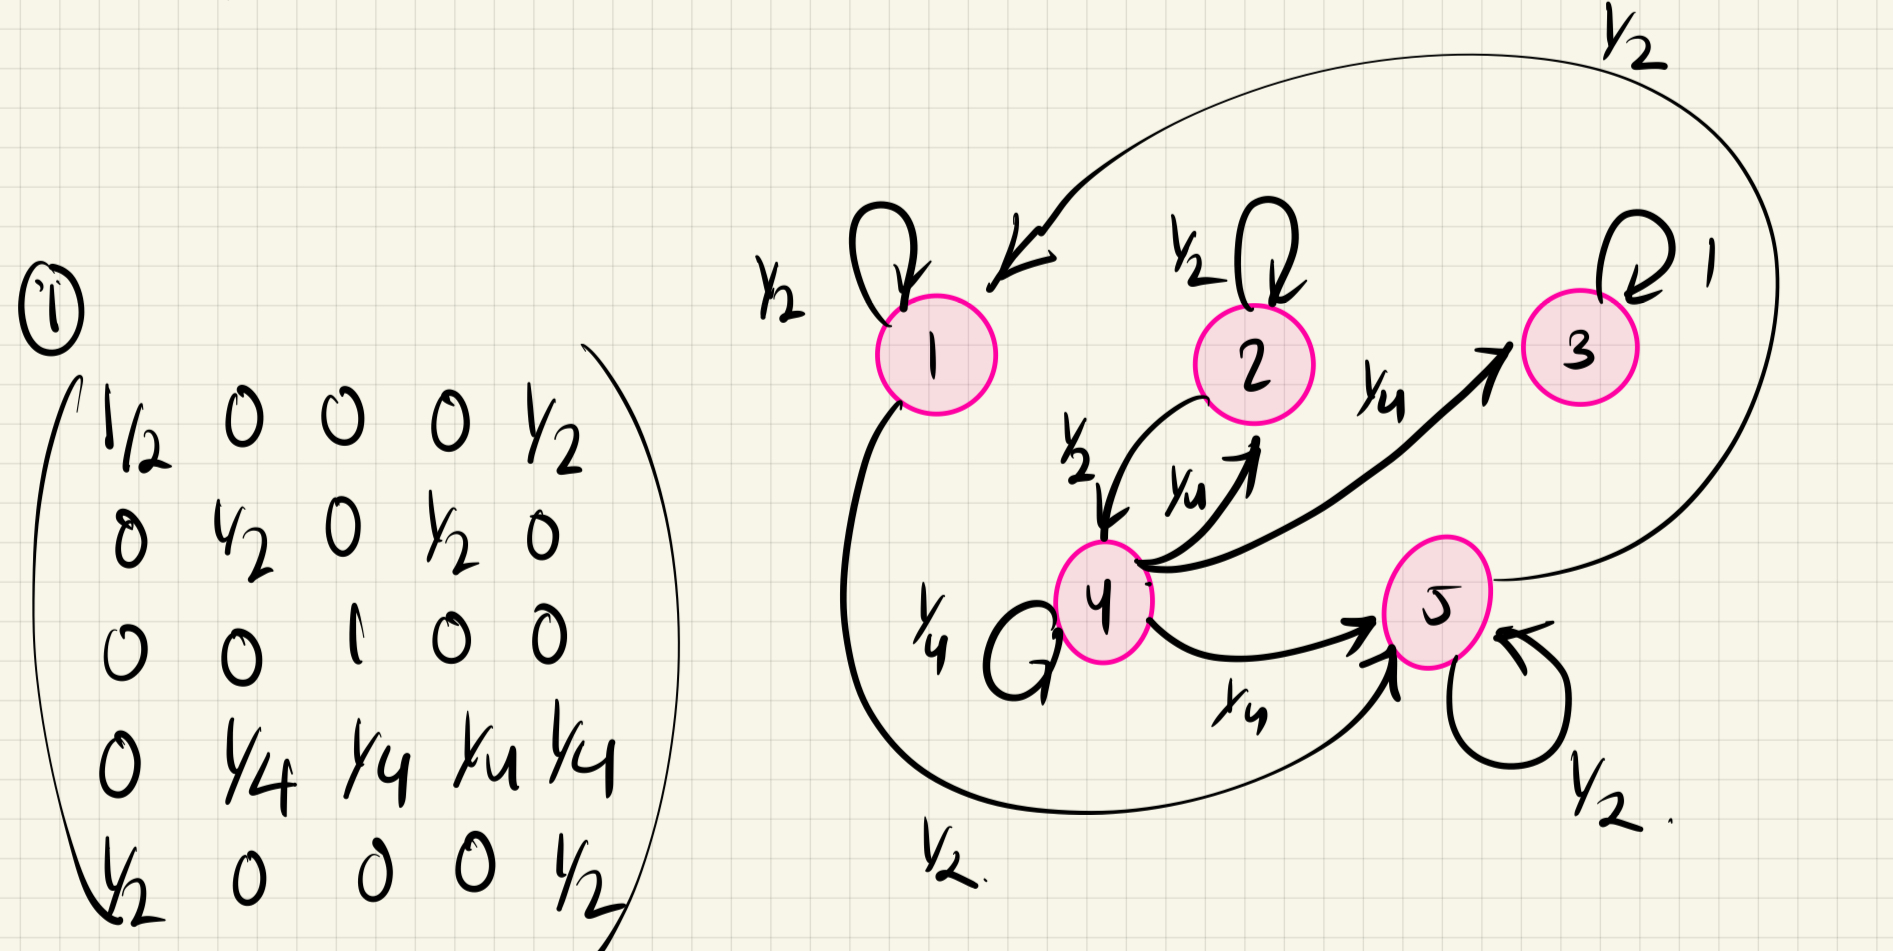 ①
1/2 0 0 0 1/2
0 1/2 0 1/2 0
0 0 1 0 0
0 1/4 1/4 1/4 1/4
1/2 0 0 0 1/2
1/2
1/2
1/2
1
1
2
3
1/4
1/2
1/4
4
5
1/4
1/4
1/2
1/2